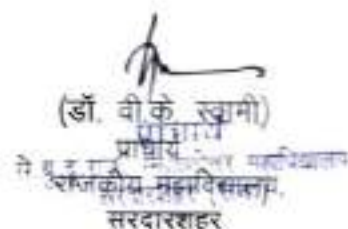 (डॉ. वी.के. स्वामी)
प्राचार्य
राजकीय महाविद्यालय,
सरदारशहर